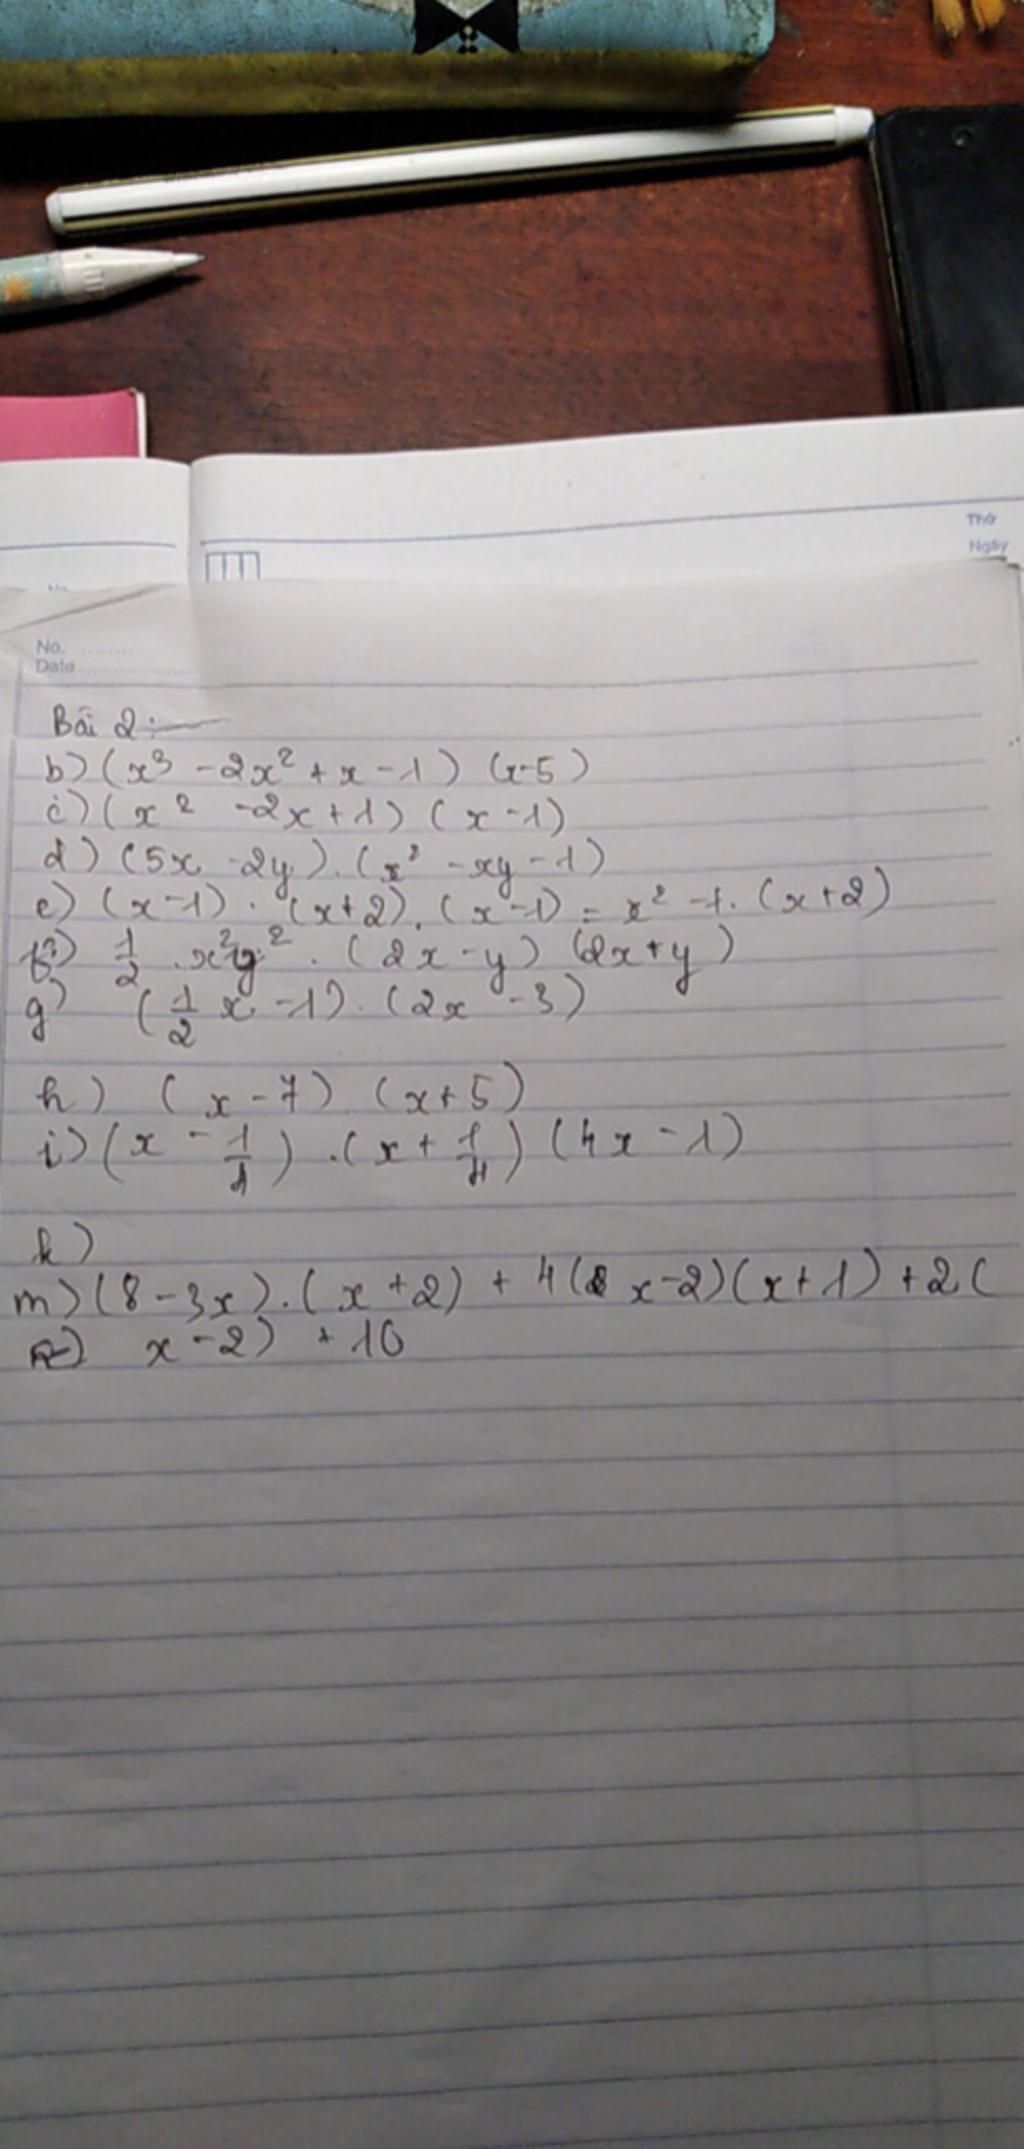 Thứ
Ngày
No.
Date
Bài 2:
b) (x³ - 2x² + x - 1) (x-5)
c) (x² - 2x + 1) (x - 1)
d) (5x - 2y) . (x² - xy - 1)
e) (x-1) . (x+2) . (x-1) = x² - 1. (x+2)
f) 1/2 . x²y² . (2x - y) (2x+y)
g) (1/2 x - 1) . (2x - 3)
h) (x - 7) (x + 5)
i) (x - 1/4) . (x + 1/4) (4x - 1)
k)
m) (8 - 3x) . (x + 2) + 4( x-2) (x + 1) + 2 (
x - 2) + 10